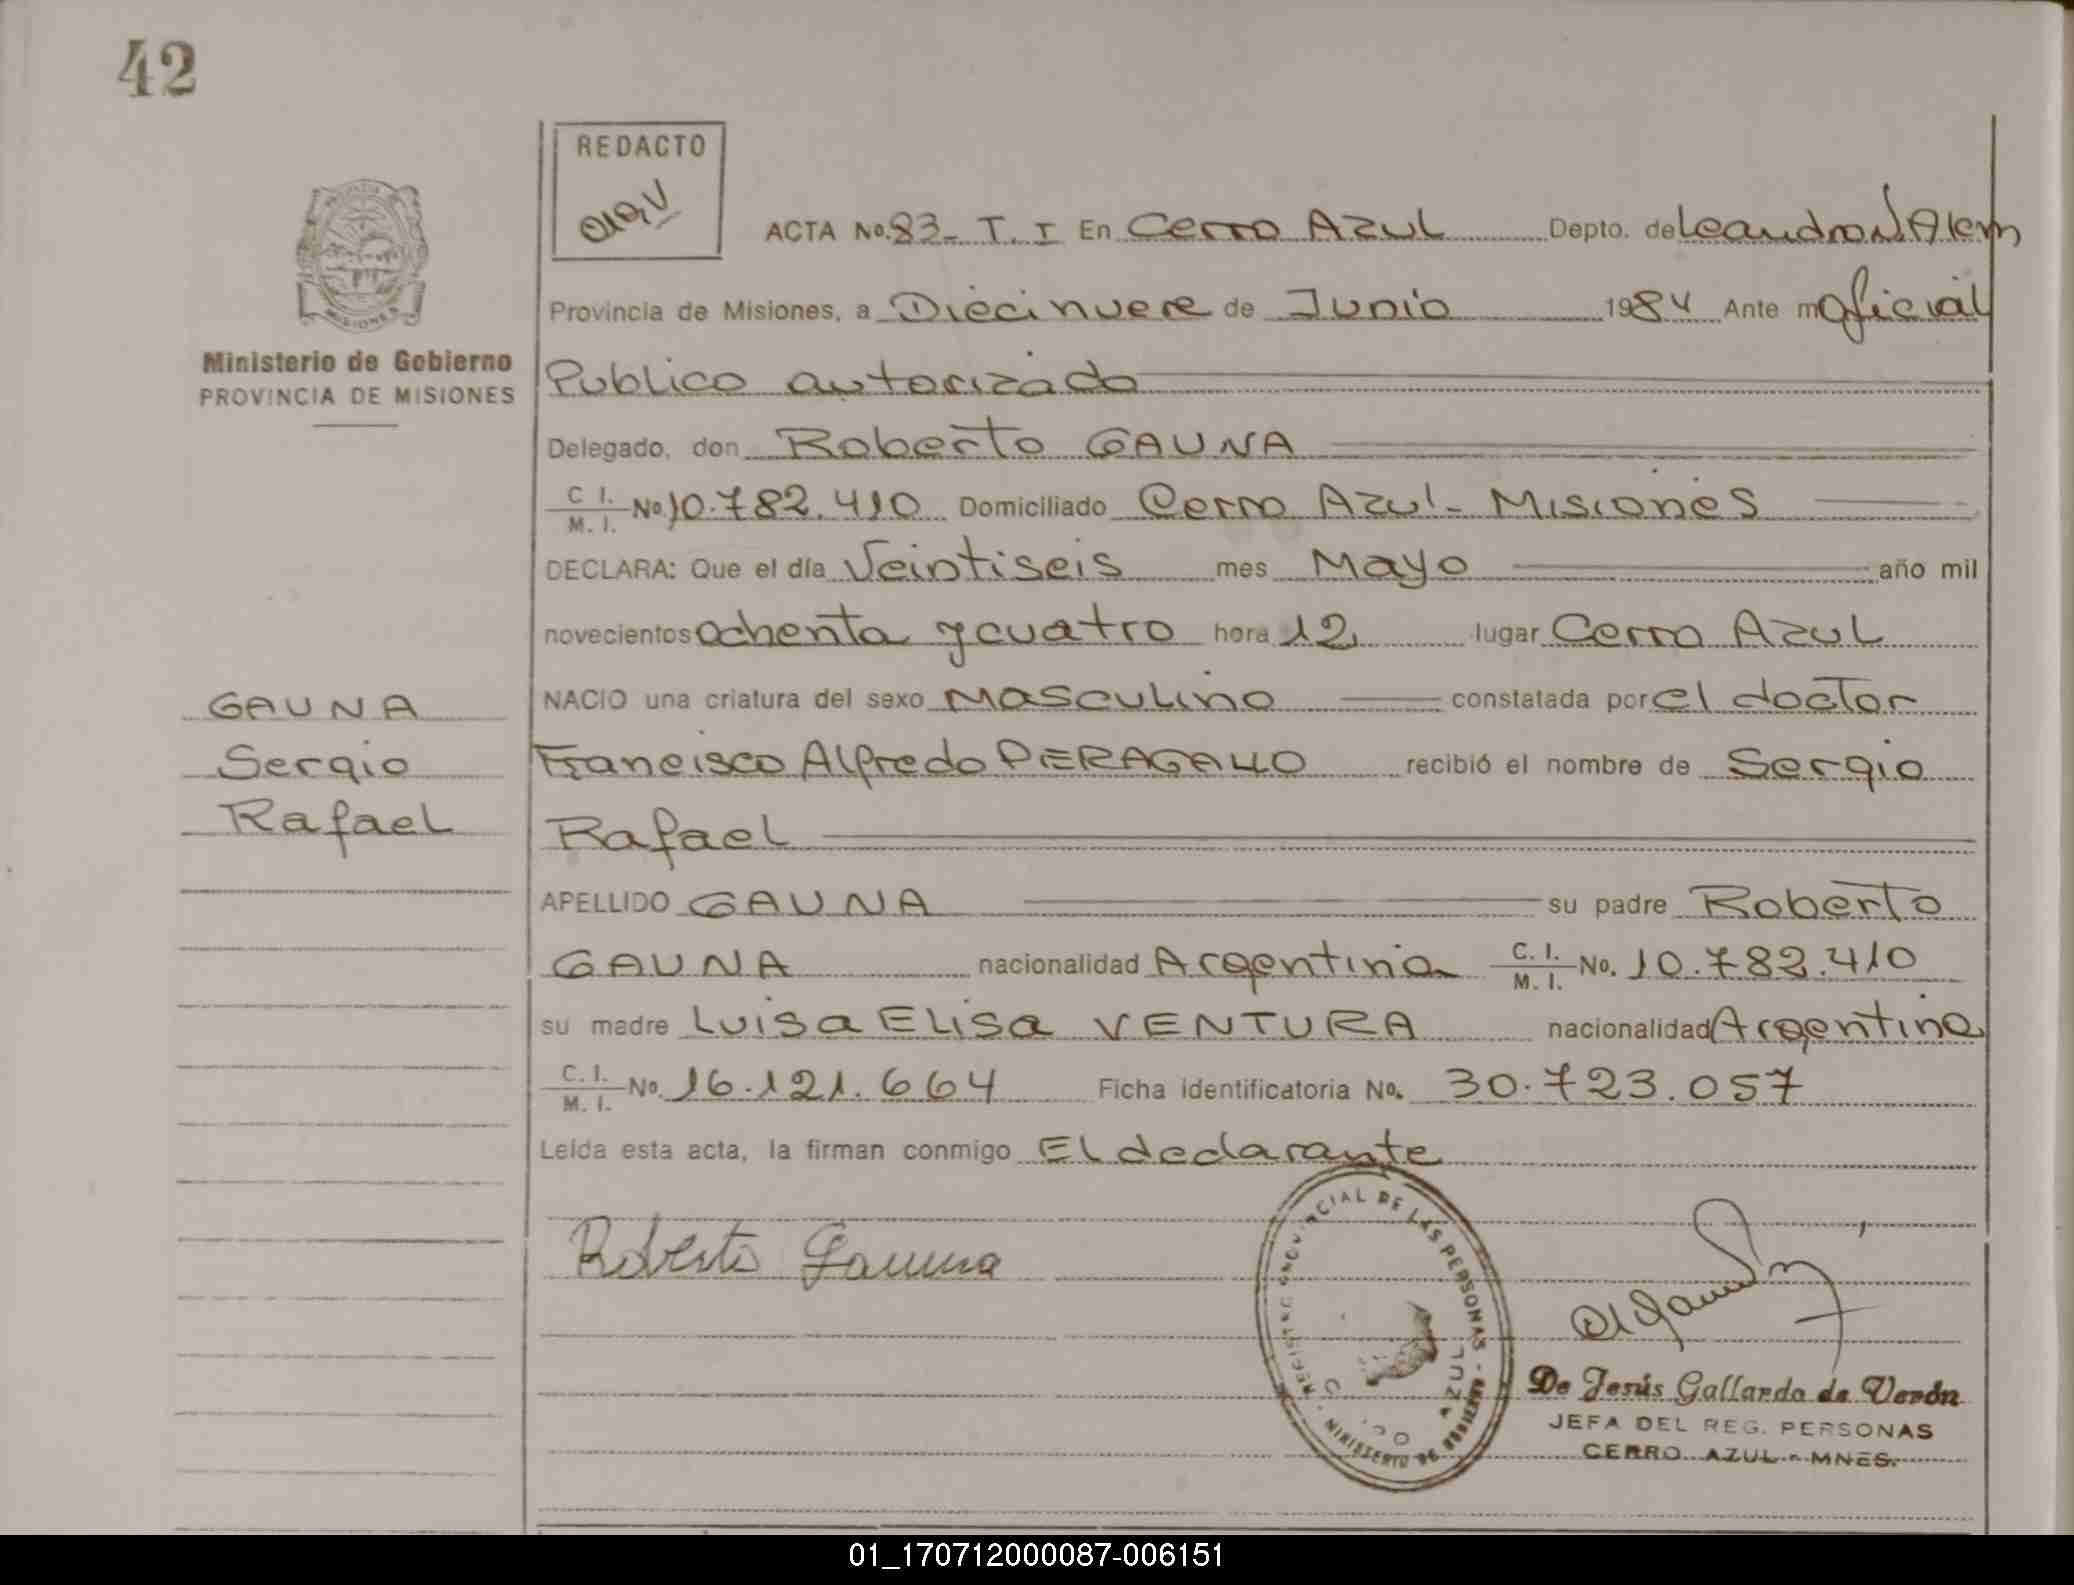 42
REDACTO
ACTA No. 83- T. I En Cerro Azul Depto. de Leandro N Alem
Provincia de Misiones, a Diecinueve de Junio 1984 Ante mi Oficial
Publico autorizado
MISIONES
Ministerio de Gobierno
PROVINCIA DE MISIONES
Delegado, don Roberto GAUNA
C. I. M. I. No. 10.782.410 Domiciliado Cerro Azul- Misiones
DECLARA: Que el día Veintiseis mes Mayo año mil
novecientos ochenta y cuatro hora 12 lugar Cerro Azul
NACIO una criatura del sexo Masculino constatada por el doctor
Francisco Alfredo PERAGALLO recibió el nombre de Sergio
Rafael
GAUNA
Sergio
Rafael
APELLIDO GAUNA su padre Roberto
GAUNA nacionalidad Argentina C. I. M. I. No. 10.782.410
su madre Luisa Elisa VENTURA nacionalidad Argentina
C. I. M. I. No. 16.121.664 Ficha identificatoria No. 30.723.057
Leída esta acta, la firman conmigo El declarante
Roberto Gauna
REGISTRO PROVINCIAL DE LAS PERSONAS - MINISTERIO DE GOBIERNO
AZUL
De Jesús Gallardo de Verón
JEFA DEL REG. PERSONAS
CERRO AZUL - MNES.
01_170712000087-006151